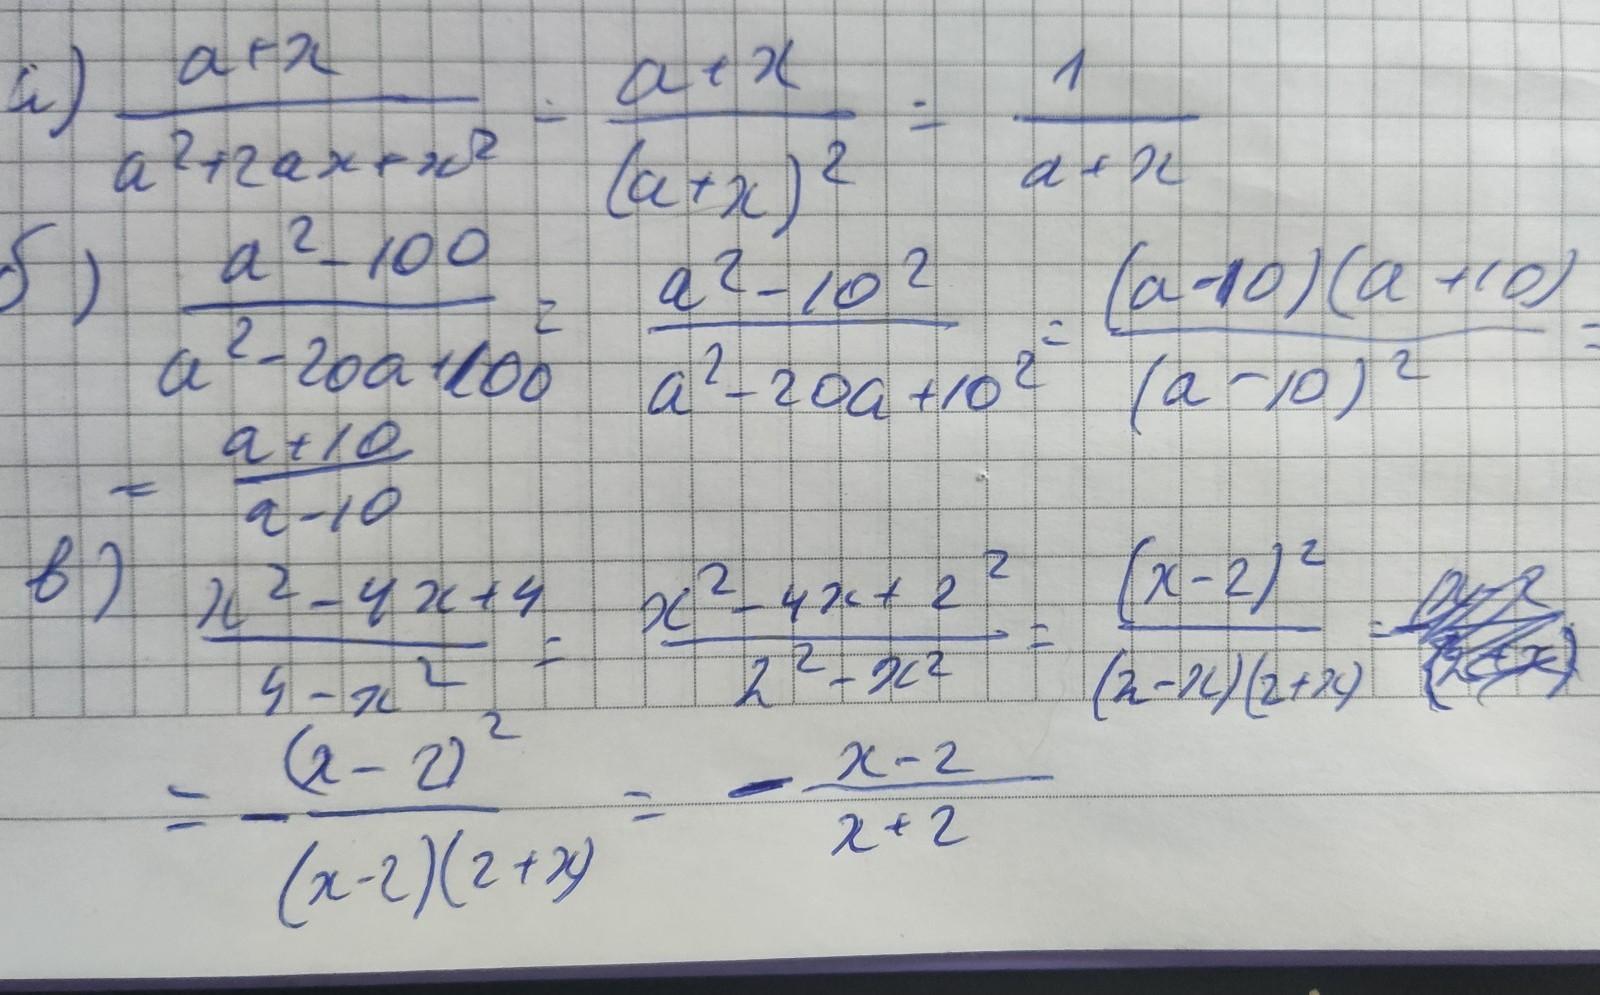 а) (a+x)/(a²+2ax+x²) = (a+x)/(a+x)² = 1/(a+x)
б) (a²-100)/(a²-20a+100) = (a²-10²)/(a²-20a+10²) = ((a-10)(a+10))/(a-10)² =
= (a+10)/(a-10)
в) (x²-4x+4)/(4-x²) = (x²-4x+2²)/(2²-x²) = (x-2)²/((2-x)(2+x)) =
= -(x-2)²/((x-2)(2+x)) = -(x-2)/(x+2)